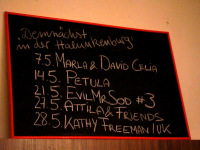 "Demnächst
in der Halunkenburg:
7.5. MARLA & DAVID CELIA
14.5. PETULA
21.5. EVIL MR SOD #3
27.5. ATTILA & FRIENDS
28.5. KATHY FREEMAN / UK